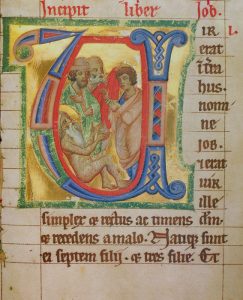 Incipit liber Job.
IR I.
erat
ĩ t̃ra
hus.
nomi
ne
JOB.
⁊ erat
uir
ille
simplex & rectus ac timens dm̃
& recedens a malo. Natiq; sunt
ei septem filij. & tres filie. Et